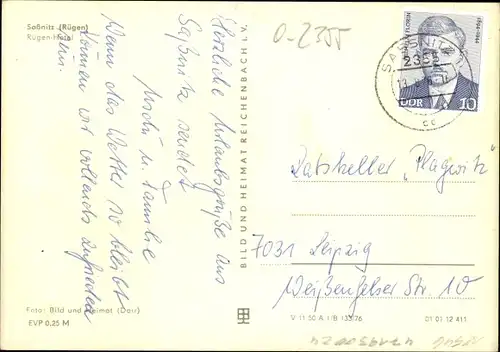 Saßnitz (Rügen)
Rügen-Hotel
0-2355
Herzliche Urlaubsgrüße aus
Saßnitz sendet
u. Familie
Wenn das Wetter so bleibt
können wir vollends zufrieden
sein.
BILD UND HEIMAT REICHENBACH I. V.
SASSNITZ
2355
DDR
10
Ratskeller „Plagwitz"
7031 Leipzig
Weißenfelser Str. 10
Foto: Bild und Heimat (Darr)
EVP 0,25 M
V 11 50 A 1/B 133/76
01 01 12 411